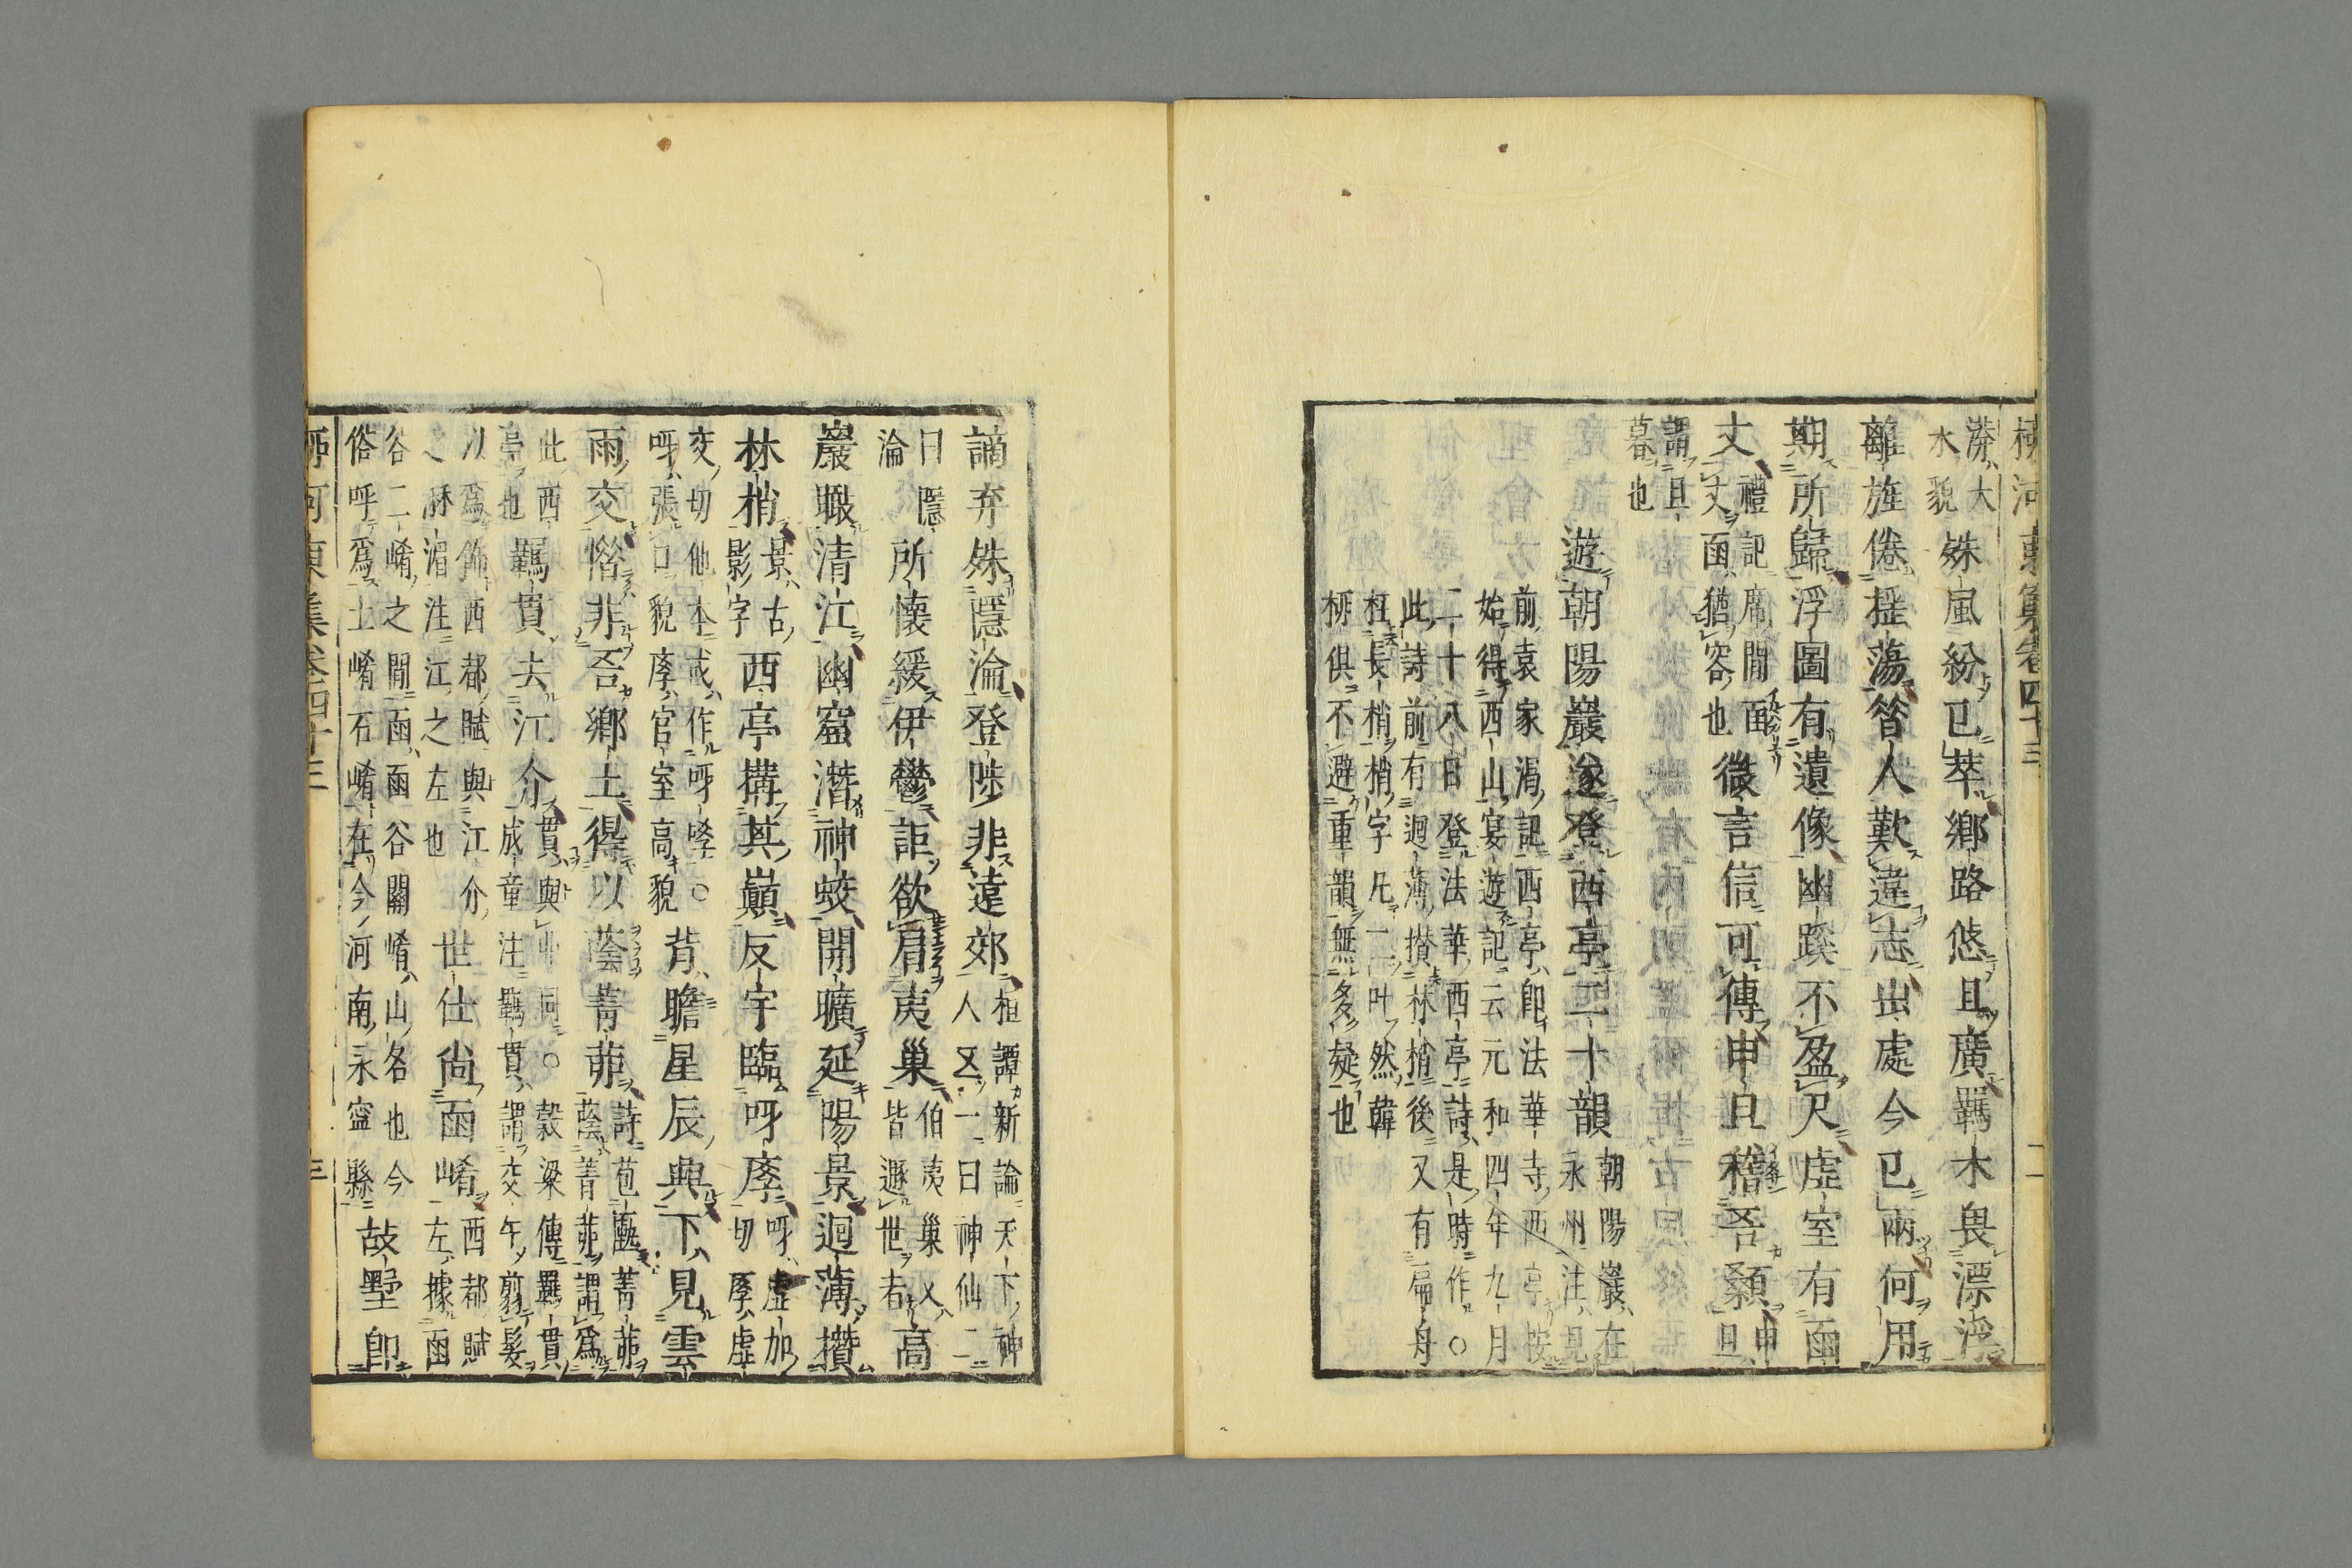 柳河東集卷四十三 二
漭大
水貌
殊風紛已萃鄉路悠且廣羈木畏漂浮
離旌倦揺蕩昔人歎違志出處今已兩何用
期所歸浮圖有遺像幽蹊不盈尺虛室有函
丈
禮記席間函
丈函猶容也
微言信可傳申旦稽吾顙
申旦
謂旦
暮也
遊朝陽巖遂登西亭二十韻
朝陽巖在
永州注見
前袁家渴記西亭即法華寺西亭按
始得西山宴遊記云元和四年九月
二十八日登法華西亭詩是時作○
此詩前有迴薄攅林梢後又有扁舟
枉長梢梢字凡二叶然韓
柳俱不避重韻無多疑也
謫弃殊隱淪登陟非遠郊
桓譚新論天下神
人五一曰神仙二
曰隱
淪
所懷緩伊鬱詎欲肩夷巢
伯夷巢父
皆遯世者
高
巖瞰清江幽窟潛神蛟開曠延陽景迴薄攅
林梢
景古
影字
西亭構其巔反宇臨呀庨
呀虛加
切庨虛
交切他本或作呀哮○
呀張口貌庨官室高貌
背瞻星辰興下見雲
雨交惜非吾鄉土得以蔭菁茆
詩苞匭菁茆
蔭菁茆謂爲
此西
亭也
羈貫去江介
貫與丱同○穀梁傳羈貫
成童注羈貫謂交午翦髮
以爲飾西都賦與江介
之湄注江之左也
世仕尚函崤
西都賦
左據函
谷二崤之間函函谷關崤山名也今
俗呼爲土崤石崤在今河南永寧縣
故墅即
柳河東集卷四十三 三